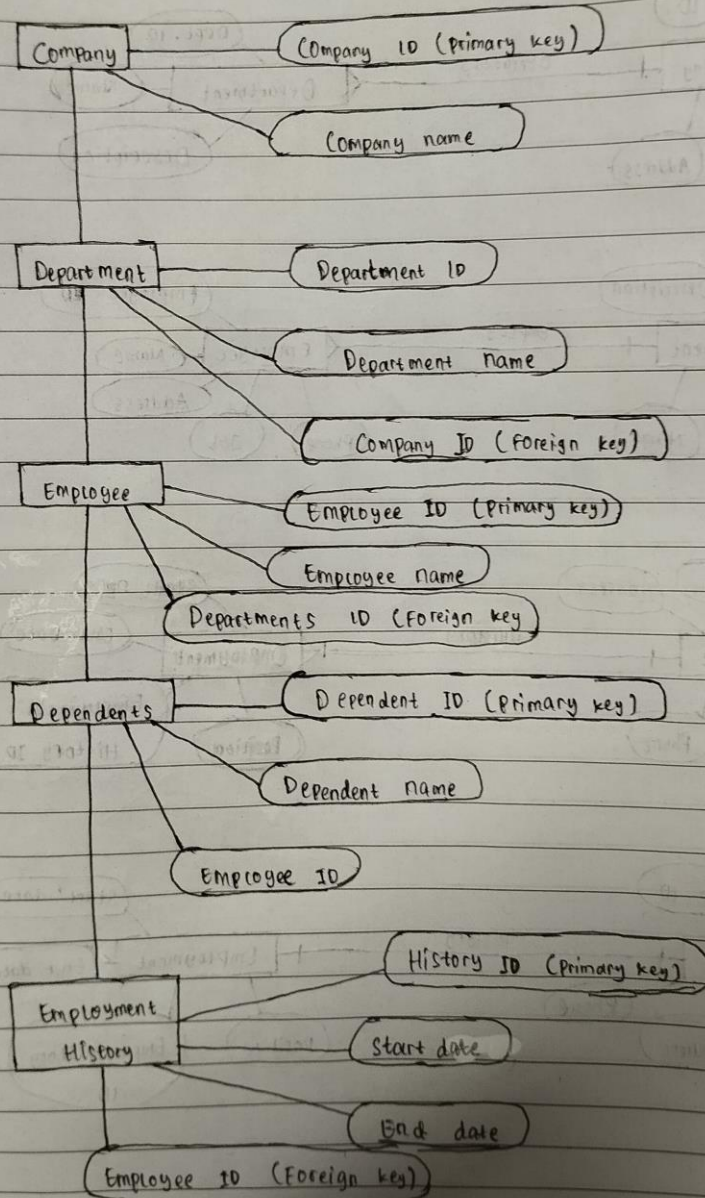 Company
Company ID (primary key)
Company name
Department
Department ID
Department name
Company ID (foreign key)
Employee
Employee ID (primary key)
Employee name
Departments ID (Foreign key
Dependents
Dependent ID (primary key)
Dependent name
Employee ID
History ID (primary key)
Employment
History
Start date
End date
Employee ID (Foreign key)